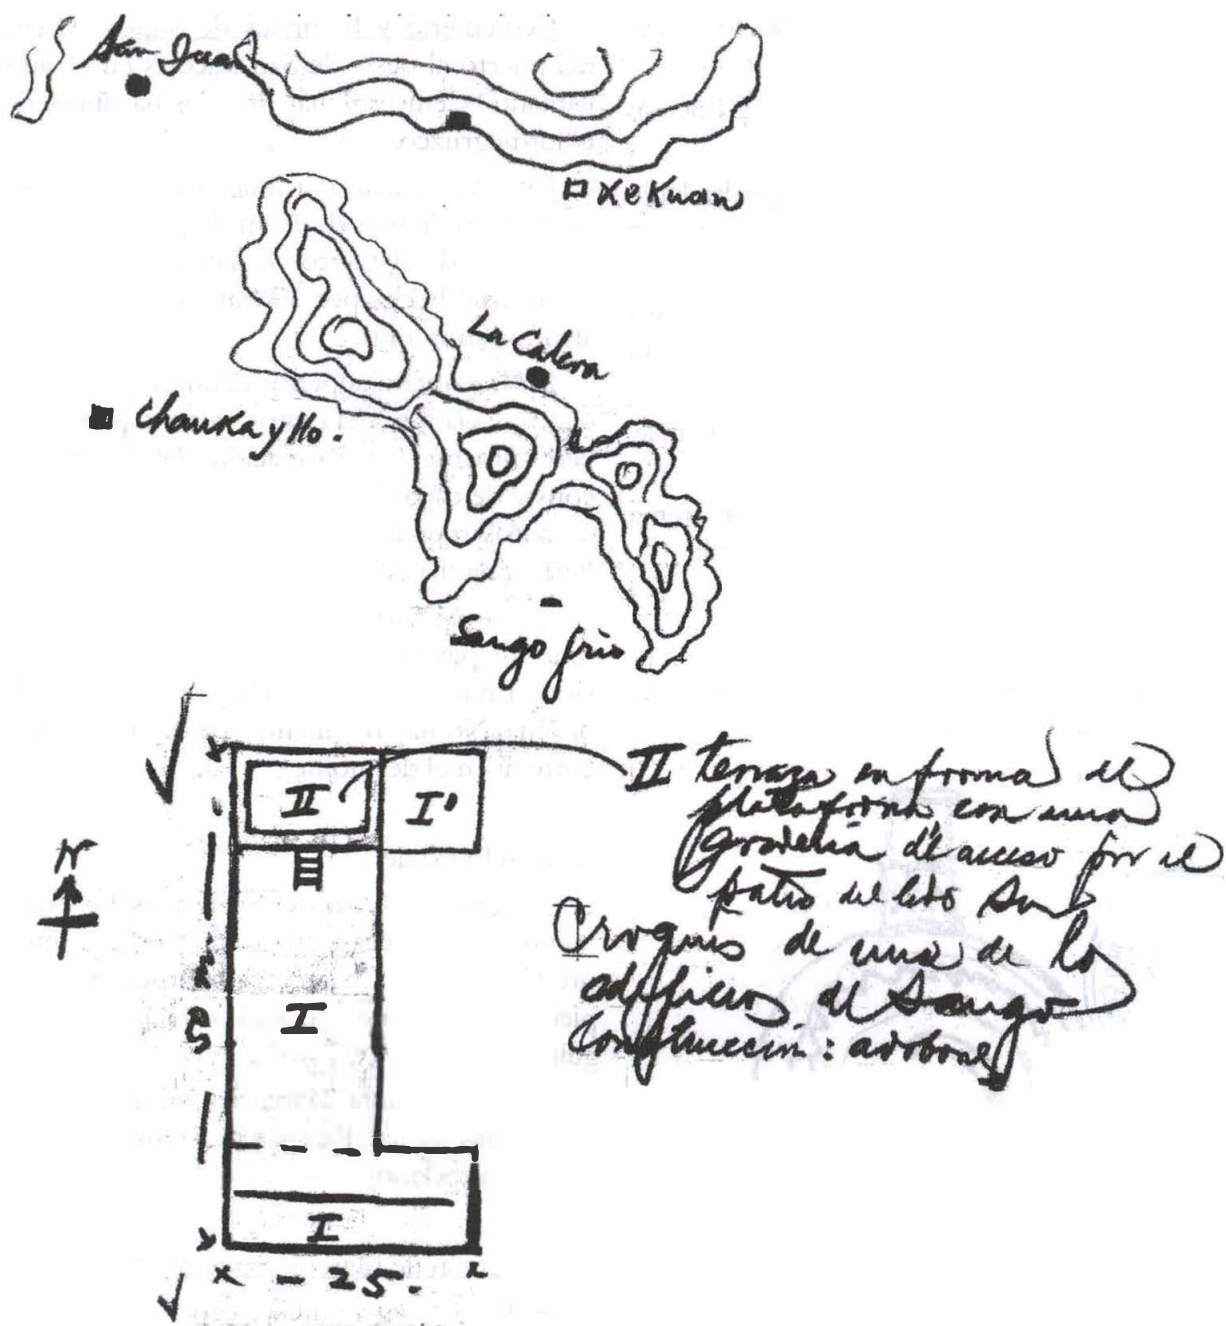 San Juan
Xekuan
La Calera
Chauka y Ho.
Sango frio
II
I'
N
I
I
x - 25. x
II terraza en forma de
plataforma con una
graderia de acceso por el
patio del lado Sur
Croquis de uno de los
edificios de Sango
Construccion: adobone